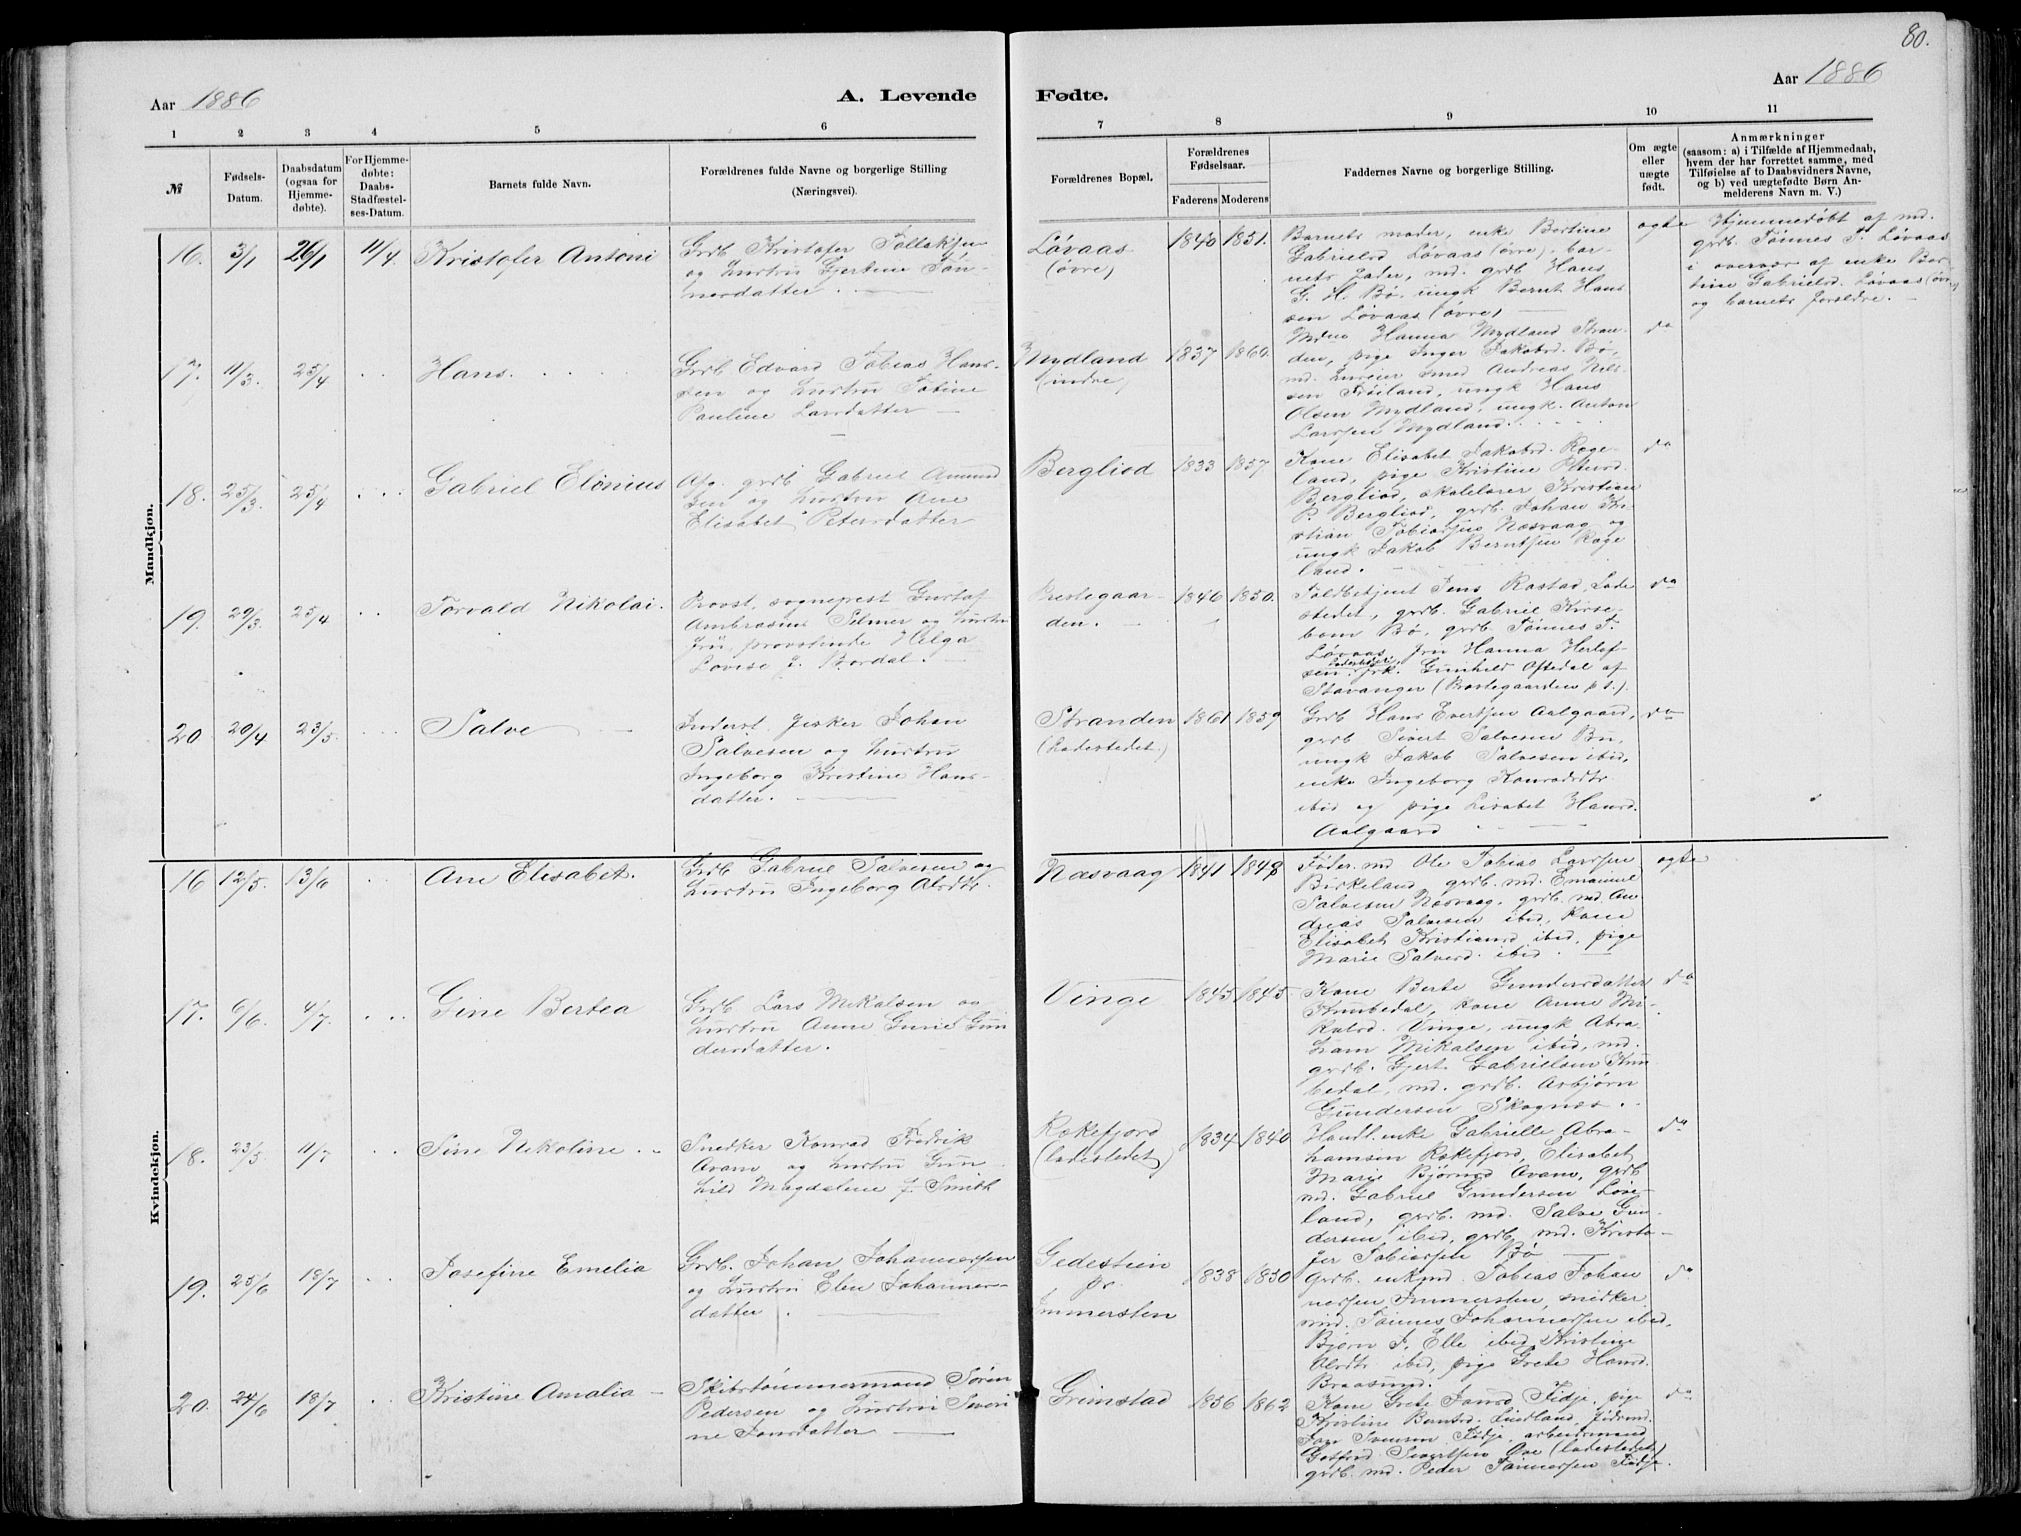 80.
Aar 1886
A. Levende
Fødte.
Aar 1886
1 2 3 4 5 6 7 8 9 10 11
№
Fødsels-
Datum.
Daabsdatum
(ogsaa for
Hjemme-
døbte).
For Hjemme-
døbte:
Daabs-
Stadfæstel-
ses-Datum.
Barnets fulde Navn.
Forældrenes fulde Navne og borgerlige Stilling
(Næringsvei).
Forældrenes Bopæl.
Forældrenes
Fødselsaar.
Faderens Moderens
Faddernes Navne og borgerlige Stilling.
Om ægte
eller
uægte
født.
Anmærkninger
(saasom: a) i Tilfælde af Hjemmedaab,
hvem der har forrettet samme, med
Tilføielse af to Daabsvidners Navne,
og b) ved uægtefødte Børn An-
melderens Navn m. V.)
Mandkjøn.
16. 3/1 26/1 11/4. Kristofer Antoni
Grdb Kristofer Tollaksen
og hustru Gjertine Tøn-
nesdatter.
Løvaas
(øvre)
1840 1851.
Barnets moder, enke Bertine
Gabrielsd Løvaas (øvre), bar-
nets fader, md. grdb Hans
G. H. Bø. ungk Bernt Hans
sen Løvaas (øvre)
ægte
Hjemmedøbt af md.
grdb. Tønnes T. Løvaas
i overvær af enke Ber-
tine Gabrielsd. Løvaas (øvre)
og barnets forældre.
17. 11/3. 25/4 Hans.
Grdb Edvard Tobias Hans-
sen og hustru Tobine
Pauline Larsdatter
Mydland
(indre)
1837 1860.
Mdne Hanna Mydland Stran-
den, pige Inger Jakobsd. Bø,
md. smed Andreas Nils-
sen Frøiland, ungk Hans
Olsen Mydland, ungk. Anton
Larssen Mydland.
do
18. 25/3. 25/4 Gabriel Elonius
Afg. grdb Gabriel Amund
sen og hustru Ane
Elisabet Petersdatter
Bergliod
1833 1857.
Kone Elisabet Jakobsd. Rege-
land, pige Kristine Oftersd
Bergliod, skolelærer Kristian
P. Bergliod, grdb. Johan Kri-
stian Tobiassen Næsvaag og
ungk Jakob Berntsen Rege
land.
do
19. 29/3. 25/4 Torvald Nikolai.
Provst, sognepræst Gustaf
Ambrosius Selmer og hustru
fru provstinde Helga
Lovise f. Bordal.
Prestegaar-
den.
1846 1850.
Toldbetjent Jens Rostad, Lade
stedet, grdb. Gabriel Kirse-
bom Bø, grdb Tønnes T.
Løvaas, fru Hanna Herlof-
sen, frk. Gunhild Oftedal af
Stavanger (Prestegaarden p t.).
do
20 20/4 23/5. Salve
Inderst fisker Johan
Salvesen og hustru
Ingeborg Kristine Hans-
datter.
Stranden
(Ladestedet)
1861 1859
Grdb Hans Evertsen Aalgaard,
grdb Sivert Salvesen Bu,
ungk Jakob Salvesen ibid,
enke Ingeborg Konradsdtr
ibid og pige Lisabet Hansd.
Aalgaard
do
Kvindekjøn.
16 12/5. 13/6 Ane Elisabet.
Grdb Gabriel Salvesen og
hustru Ingeborg Olsdtr.
Næsvaag
1841 1848
Føder. md Ole Tobias Larssen
Birkeland grdb. md. Emanuel
Salvesen Næsvaag, grdb. md An-
dreas Salvesen ibid, kone
Elisabet Kristiansd. ibid, pige
Marie Salvesd. ibid.
ægte
17. 6/6. 4/7. Gine Bertea
Grdb Lars Mikalsen og
hustru Anne Gurie Gun
dersdatter.
Vinge
1845 1845.
Kone Berte Gundersdatter
Knubedal, kone Anne Mi-
kalsd. Vinge, ungk Abra
ham Mikalsen ibid, md.
grdb. Gjert Gabrielsen Knu
bedal, md. grdb. Asbjørn
Gundersen Skognæs.
do
18. 23/5. 11/7 Sine Nikoline.
Snedker Konrad Fredrik
Avam og hustru Gun
hild Magdalene f. Smith
Rækefjord
(ladestedet)
1834 1840
Handl. enke Gabrielle Abra-
hamsen Rækefjord, Elisabet
Marie Bjørnsd Avam, grdb
md. Gabriel Gundersen Løve
land, grdb. md. Salve Gun-
dersen ibid, grdb. md. Kristo-
fer Tobiassen Bø
do
19. 25/6 18/7 Josefine Emelia
Grdb. Johan Johannessen
og hustru Elen Johannes-
datter.
Gedestien
pr.
Immersten
1838 1850
Grdb. enkmd. Tobias Johan
nessen Immersten, snedker
md. Tønnes Johannessen ibid,
Bjørn J. Elle ibid, Kristine
Olsdtr ibid, pige Grete Hansd.
Braasund.
do
20. 24/6 18/7 Kristine Amalia
Skibstømmermand Søren
Pedersen og hustru Severi
ne Jansdatter
Grimstad
1856 1862
Kone Grete Jansd Fidje, pige
Kristine Berntsd. Lindland,
Jan Svensen Fidje, arbeidsmand
Gotfred Sivertsen Øie (ladestedet)
grdb. md. Peder Tønnessen Fidje.
do